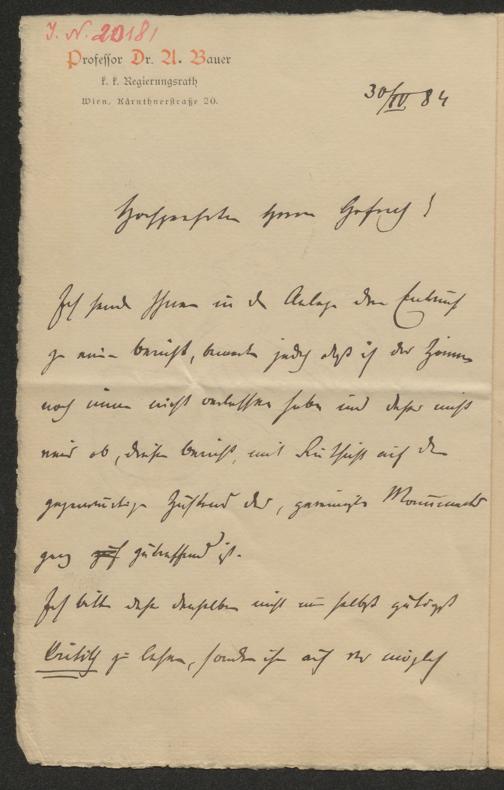 J. N. 20181
Professor Dr. A. Bauer
k. k. Regierungsrath
Wien, Kärnthnerstraße 20.
30/IV 84
Hochgeehrter Herr Hofrath!
Ich sende Ihnen in der Anlage den Entwurf
zu einem Bericht, bemerke jedoch daß ich das Zimmer
noch immer nicht verlassen habe und daher nicht
weiß ob dieser Bericht, mit Rücksicht auf den
gegenwärtigen Zustand des, gereinigten Monuments
ganz zutreffend ist.
Ich bitte daher denselben nicht nur selbst gütigst
kritisch zu lesen, sondern ihn auch wo möglich